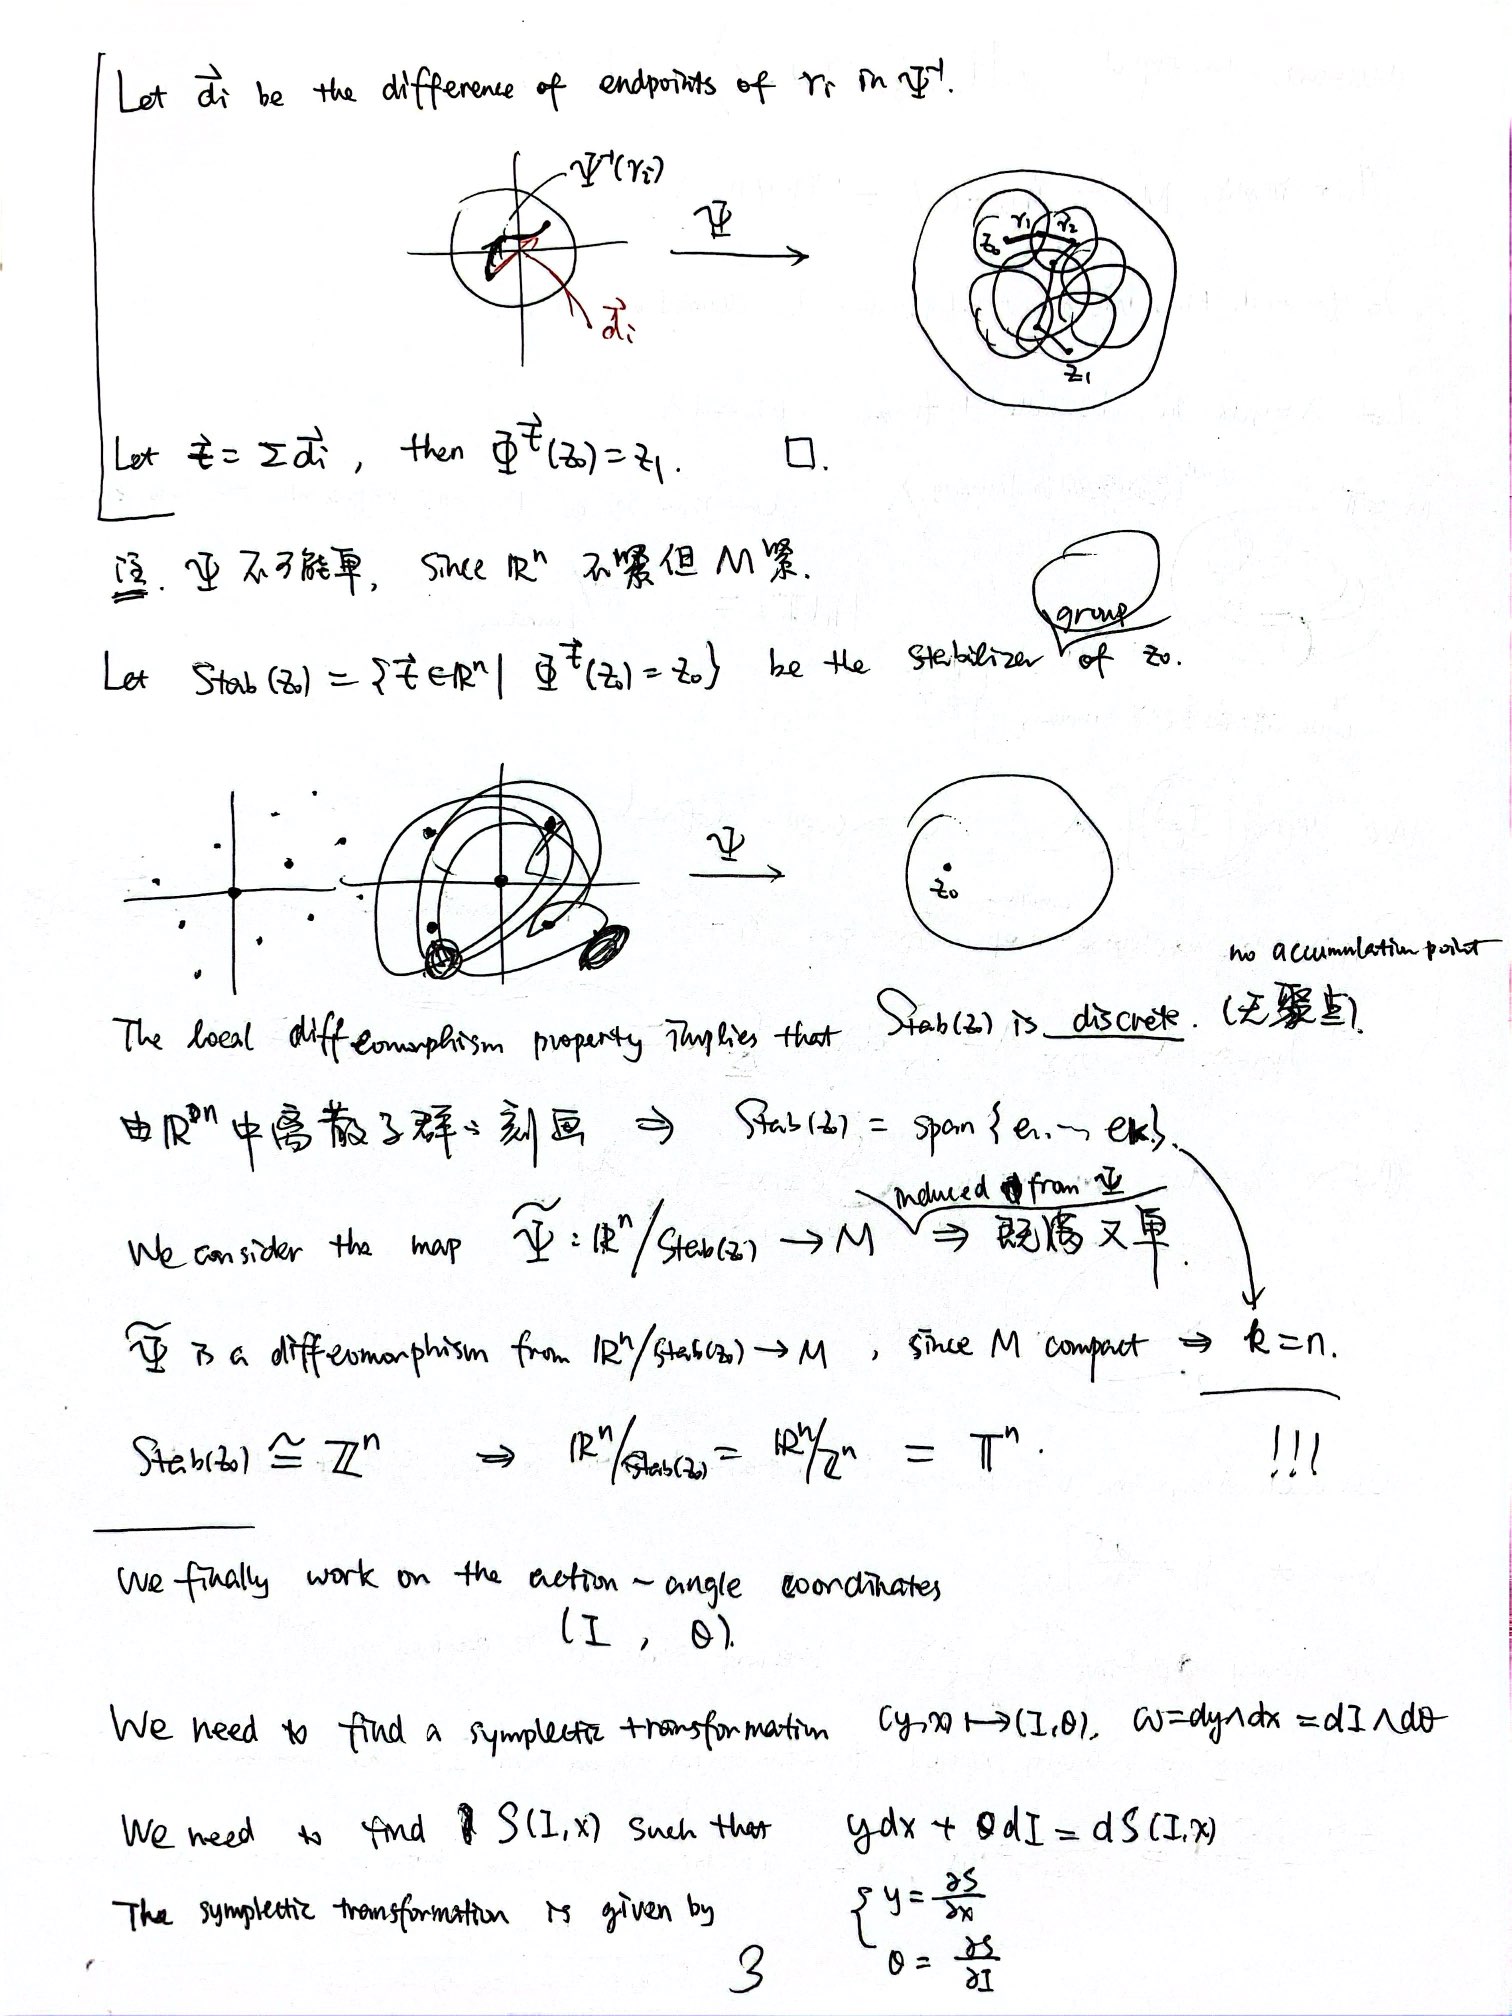 Let d⃗i be the difference of endpoints of γi in Ψ⁻¹.
Ψ⁻¹(γi)
Ψ
d⃗i
z₀ γ₁ γ₂
z₁
Let t⃗ = Σd⃗i , then Φ^t⃗(z₀) = z₁. □.
注. Ψ 不可能单, Since ℝⁿ 不紧但 M 紧.
group
Let Stab(z₀) = {t⃗ ∈ ℝⁿ | Φ^t⃗(z₀) = z₀} be the stabilizer of z₀.
Ψ
z₀
no accumulation point
The local diffeomorphism property implies that Stab(z₀) is discrete. (无聚点).
由 ℝⁿ 中离散子群的刻画 ⇒ Stab(z₀) = span{e₁, ⋯ eₖ}.
induced from Ψ
We consider the map Ψ̃ : ℝⁿ/Stab(z₀) → M ⇒ 既满又单.
Ψ̃ is a diffeomorphism from ℝⁿ/Stab(z₀) → M , since M compact ⇒ k = n.
Stab(z₀) ≅ ℤⁿ ⇒ ℝⁿ/Stab(z₀) = ℝⁿ/ℤⁿ = 𝕋ⁿ. !!!
We finally work on the action - angle coordinates
(I , θ).
We need to find a symplectic transformation (y,x) ↦ (I,θ). ω = dy∧dx = dI∧dθ
We need to find S(I,x) such that ydx + θdI = dS(I,x)
The symplectic transformation is given by { y = ∂S/∂x
θ = ∂S/∂I
3